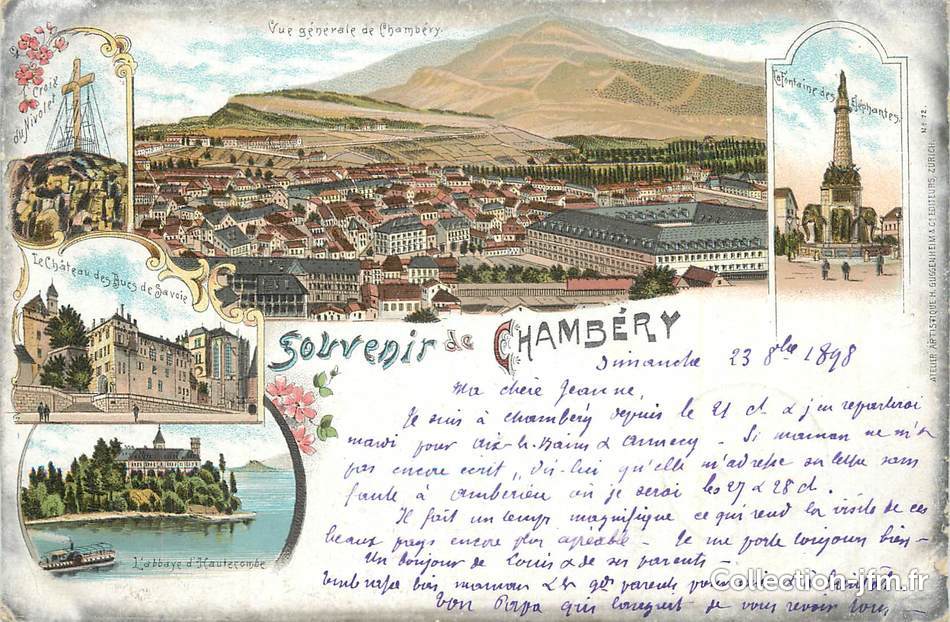 Vue générale de Chambéry.
Croix
du Nivolet
La Fontaine des Eléphantes.
No. 72.
ATELIER ARTISTIQUE H. GUGGENHEIM & Co. EDITEURS, ZURICH.
Le Château des Ducs de Savoie
Souvenir de CHAMBÉRY
Dimanche 23 8bre 1898
Ma chère Jeanne,
Je suis à Chambéry depuis le 21 ct. & j'en repartirai
mardi pour Aix-les-Bains & Annecy - Si maman ne m'a
pas encore écrit, dis-lui qu'elle m'adresse sa lettre sans
faute à Ambérieu où je serai les 27 & 28 ct.
Il fait un temps magnifique ce qui rend la visite de ces
beaux pays encore plus agréable - Je me porte toujours bien -
Un bonjour de Louis & de ses parents
Embrasse bien maman & les gds parents pour
Ton Papa qui languit de vous revoir tous -
L'abbaye d'Hautecombe
Collection-jfm.fr